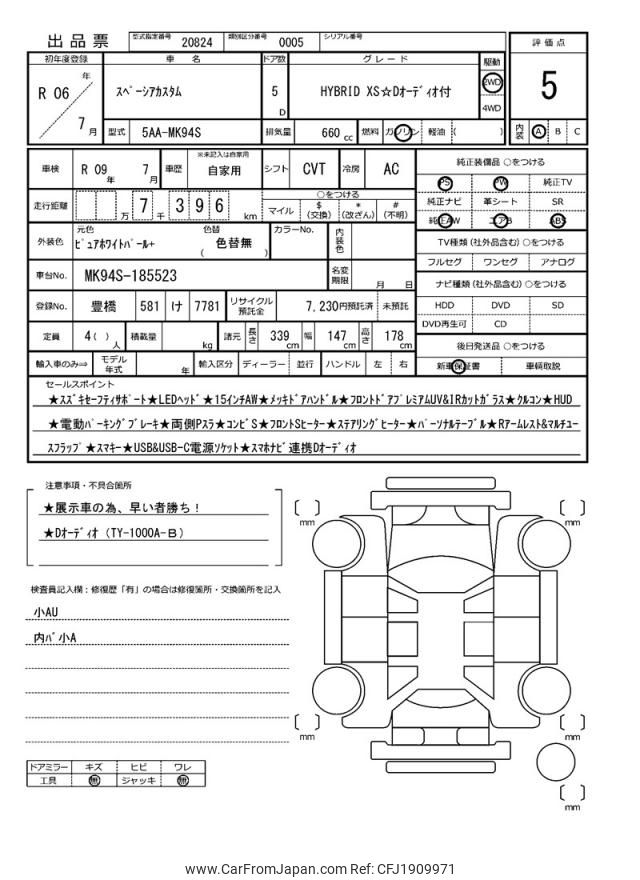 出品票 型式指定番号 20824 類別区分番号 0005 シリアル番号
評価点
初年度登録 車名 ドア数 グレード 駆動
R 06 年 7 月 スペーシアカスタム 5 D HYBRID XS☆Dオーディオ付 2WD 4WD
5
型式 5AA-MK94S 排気量 660 cc 燃料 ガソリン 軽油 ( )
内装 A B C
車検 R 09 年 7 月 車歴 ※未記入は自家用 自家用 シフト CVT 冷房 AC
純正装備品 ○をつける
PS PW 純正TV
走行距離 万 7 千 3 9 6 km ○をつける
マイル $(交換) *(改ざん) #(不明)
純正ナビ 革シート SR
純正AW エアB ABS
外装色 元色 ピュアホワイトパール+ 色替 ( 色替無 ) カラーNo. 内装色
TV種類 (社外品含む) ○をつける
フルセグ ワンセグ アナログ
車台No. MK94S-185523 名変期限 月 日
ナビ種類 (社外品含む) ○をつける
登録No. 豊橋 581 け 7781 リサイクル預託金 7,230円預託済 未預託
HDD DVD SD
DVD再生可 CD
定員 4( ) 人 積載量 kg 諸元 長さ 339 cm 幅 147 cm 高さ 178 cm
後日発送品 ○をつける
輸入車のみ⇒ モデル年式 年 輸入区分 ディーラー 並行 ハンドル 左 右
新車保証書 車輌取説
セールスポイント
★スズキセーフティサポート★LEDヘッド★15インチAW★メッキドアハンドル★フロントドアプレミアムUV&IRカットガラス★クルコン★HUD
★電動パーキングブレーキ★両側Pスラ★コンビS★フロントSヒーター★ステアリングヒーター★パーソナルテーブル★Rアームレスト&マルチユー
スフラップ★スマキー★USB&USB-C電源ソケット★スマホナビ連携Dオーディオ
注意事項・不具合箇所
★展示車の為、早い者勝ち!
★Dオーディオ (TY-1000A-B)
検査員記入欄:修復歴「有」の場合は修復箇所・交換箇所を記入
小AU
内バ小A
ドアミラー キズ ヒビ ワレ
工具 無 ジャッキ 無
[ ] mm
[ ] mm
[ ] mm
[ ] mm
[ ] mm
www.CarFromJapan.com Ref: CFJ1909971